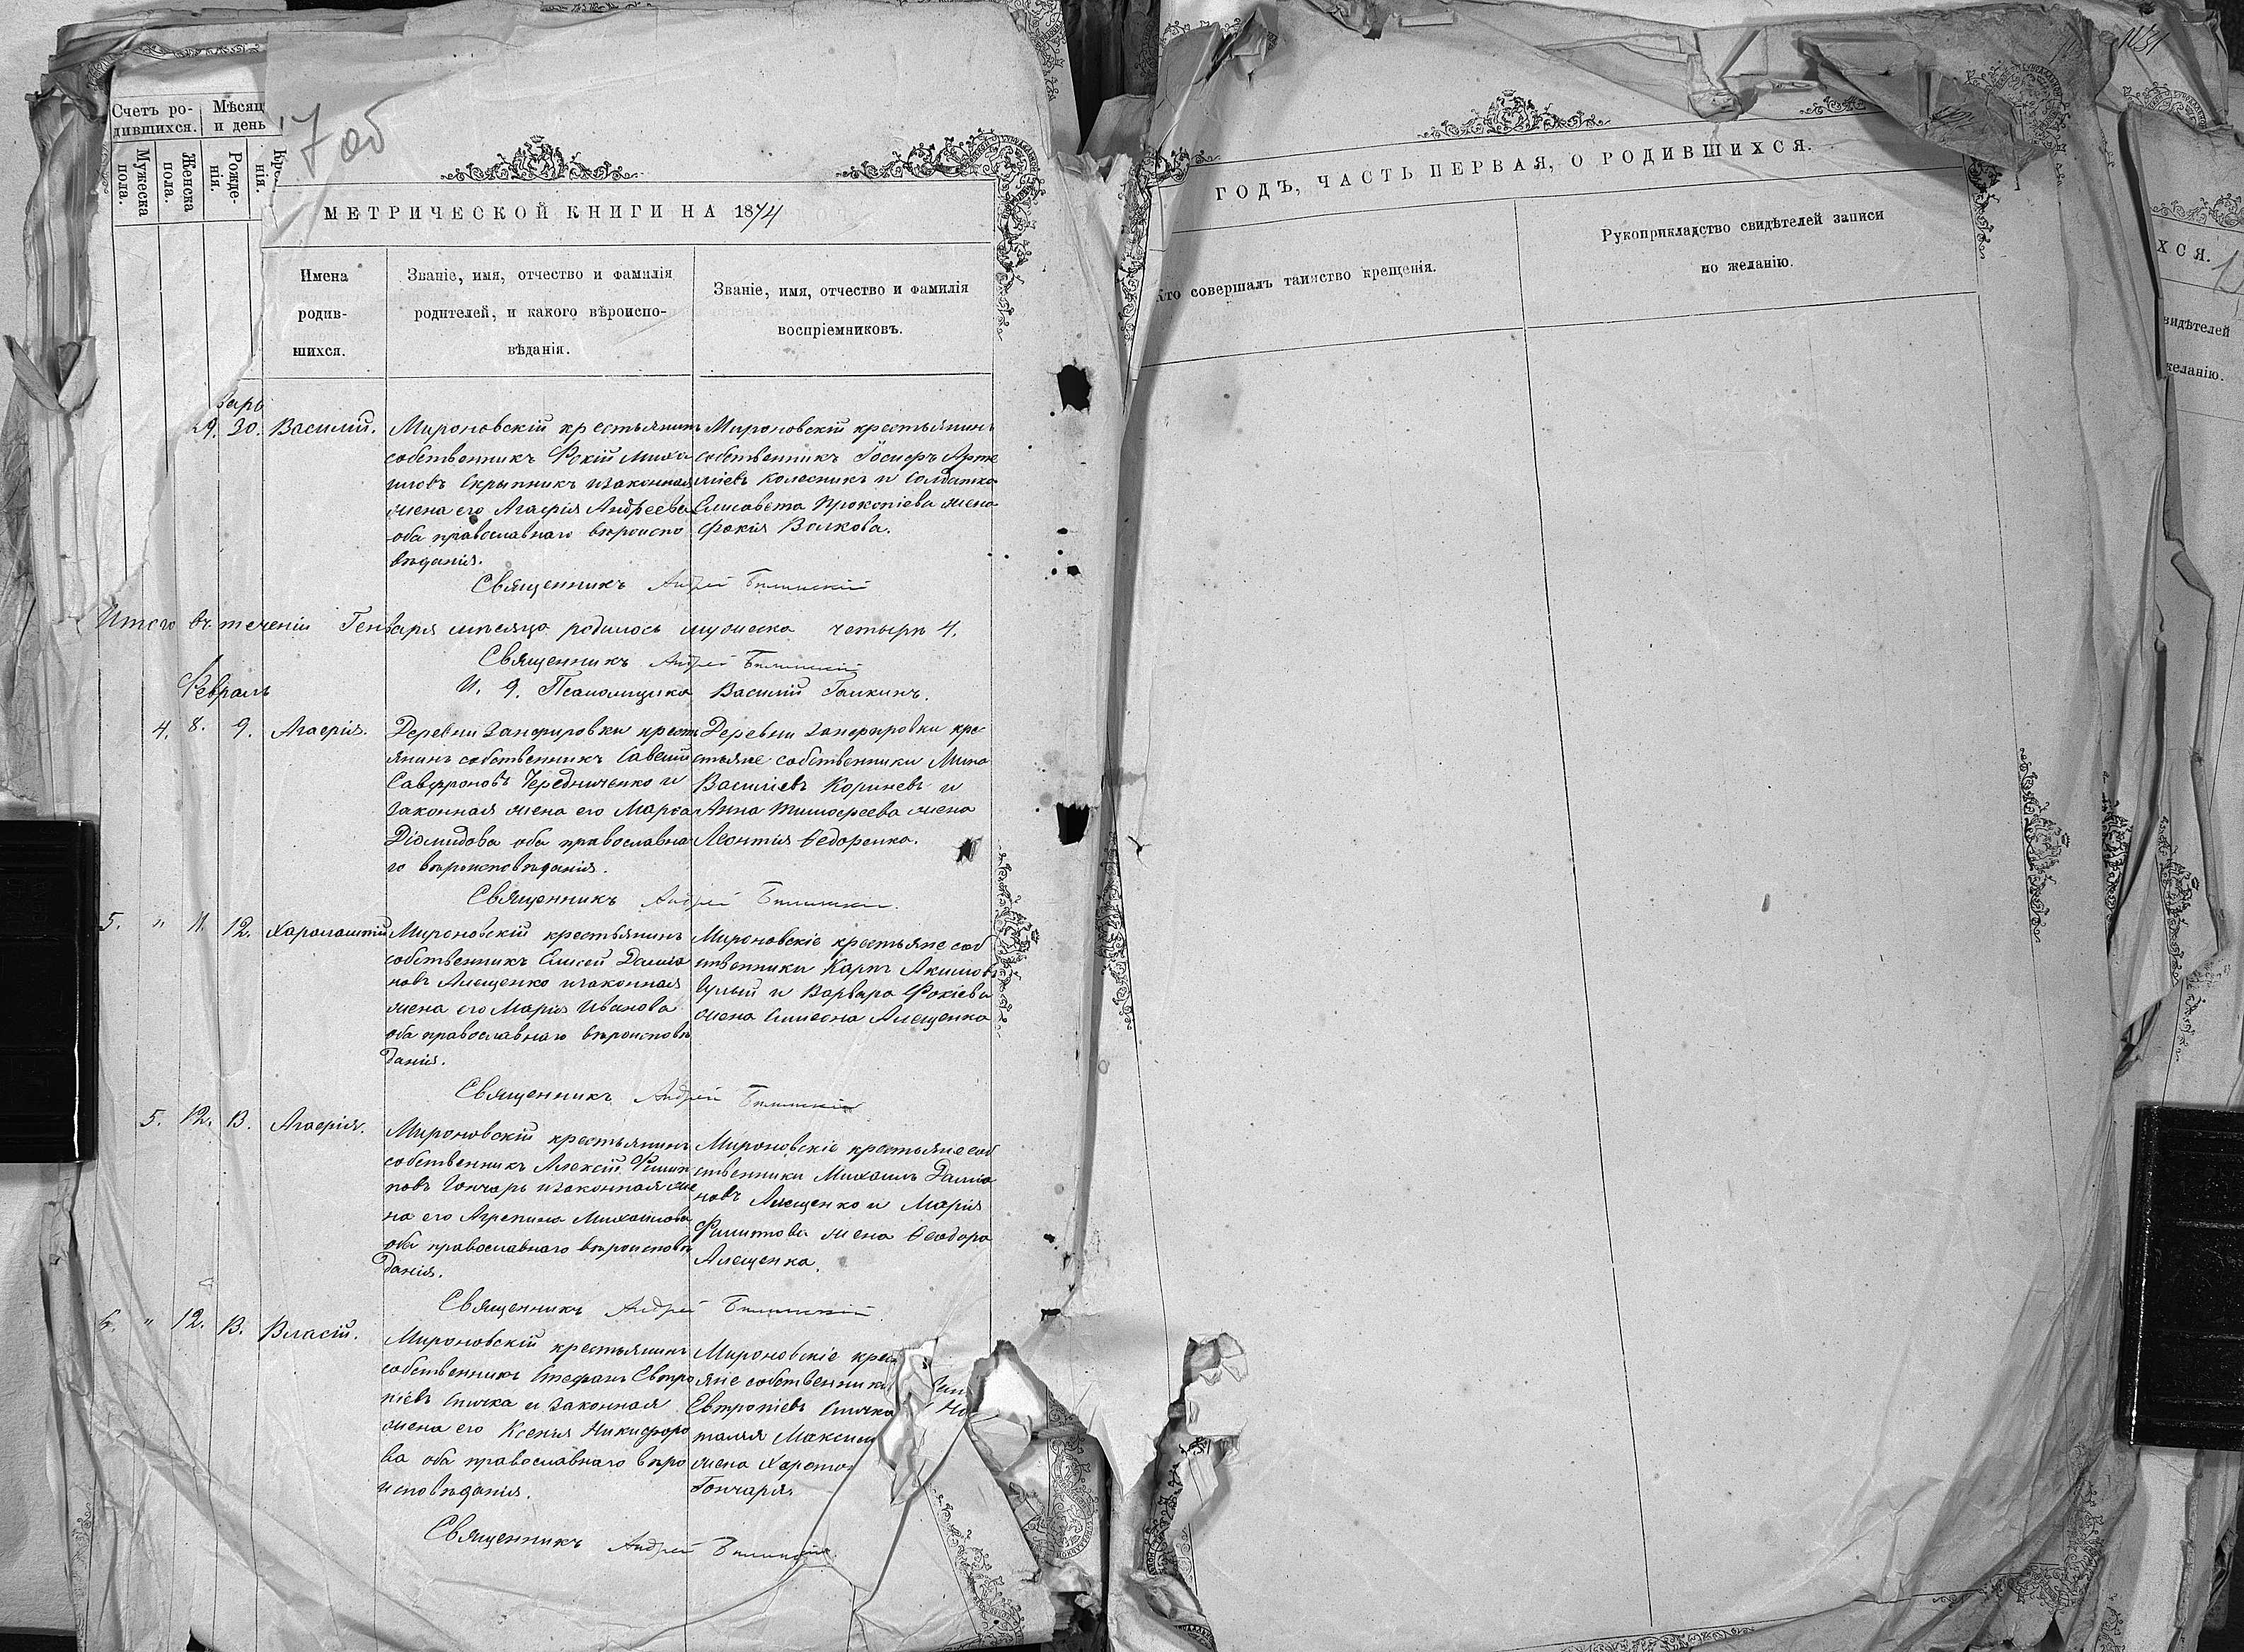 7 об
Счетъ ро-
дившихся.
Мѣсяц
и день
Мужеска
пола.
Женска
пола.
Рожде-
нія.
нія.
МЕТРИЧЕСКОЙ КНИГИ НА 1874
Имена
родив-
шихся.
Званіе, имя, отчество и фамилія
родителей, и какого вѣроиспо-
вѣданія.
Званіе, имя, отчество и фамилія
воспріемниковъ.
варь
29. 30. Василій.
Мироновскій крестьянинъ
собственникъ Фокій Миха
иловъ Скрыпникъ и законная
жена его Агафія Андреева
оба православнаго вѣроиспо
вѣданія.
Мироновскій крестьянинъ
собственникъ Іосифъ Арте
міевъ Колесникъ и солдатка
Елисавета Прокопіева жена
Фокія Волкова.
Священникъ Андрей
Итого въ теченіи Генваря мѣсяца родилось мужеска четыре 4.
Священникъ Андрей
И. д. Псаломщика Василій Галкинъ.
Февраль
4. 8. 9. Агафія.
Деревни Занфировки кресть
янинъ собственникъ Савелій
Савфроновъ Чередниченко и
законная жена его Марѳа
Діомидова оба православна
го вѣроисповѣданія.
Деревни Занфировки кре
стьяне собственники Мина
Василіевъ Кориневъ и
Анна Тимофеева жена
Леонтія Ѳедоренка.
Священникъ Андрей
5. " 11. 12. Харалампій
Мироновскій крестьянинъ
собственникъ Елисей Даміа
новъ Алещенко и законная
жена его Марія Иванова
оба православнаго вѣроисповѣ
данія.
Мироновскіе крестьяне соб
ственники Карпъ Акимовъ
и Варвара Фокіева
жена Симеона Алещенка
Священникъ Андрей
5. 12. 13. Агафія.
Мироновскій крестьянинъ
собственникъ Алексій Филип
повъ Гончаръ и законная же
на его Агрепина Михайлова
оба православнаго вѣроисповѣ
данія.
Мироновскіе крестьяне соб
ственники Михаилъ Даміа
новъ Алещенко и Марія
Филиппова жена Ѳеодора
Алещенка.
Священникъ Андрей
6. " 12. 13. Власій.
Мироновскій крестьянинъ
собственникъ Стефанъ Евтро
піевъ Спичка и законная
жена его Ксенія Никифоро
ва оба православнаго вѣро
исповѣданія.
Мироновскіе крес
яне собственники
Евтропіевъ Спичка На
талія Максим
жена Харитон
Гончаря
Священникъ Андрей
ГОДЪ, ЧАСТЬ ПЕРВАЯ, О РОДИВШИХСЯ.
Кто совершалъ таинство крещенія.
Рукоприкладство свидѣтелей записи
по желанію.
ХСЯ.
видѣтелей
желанію.